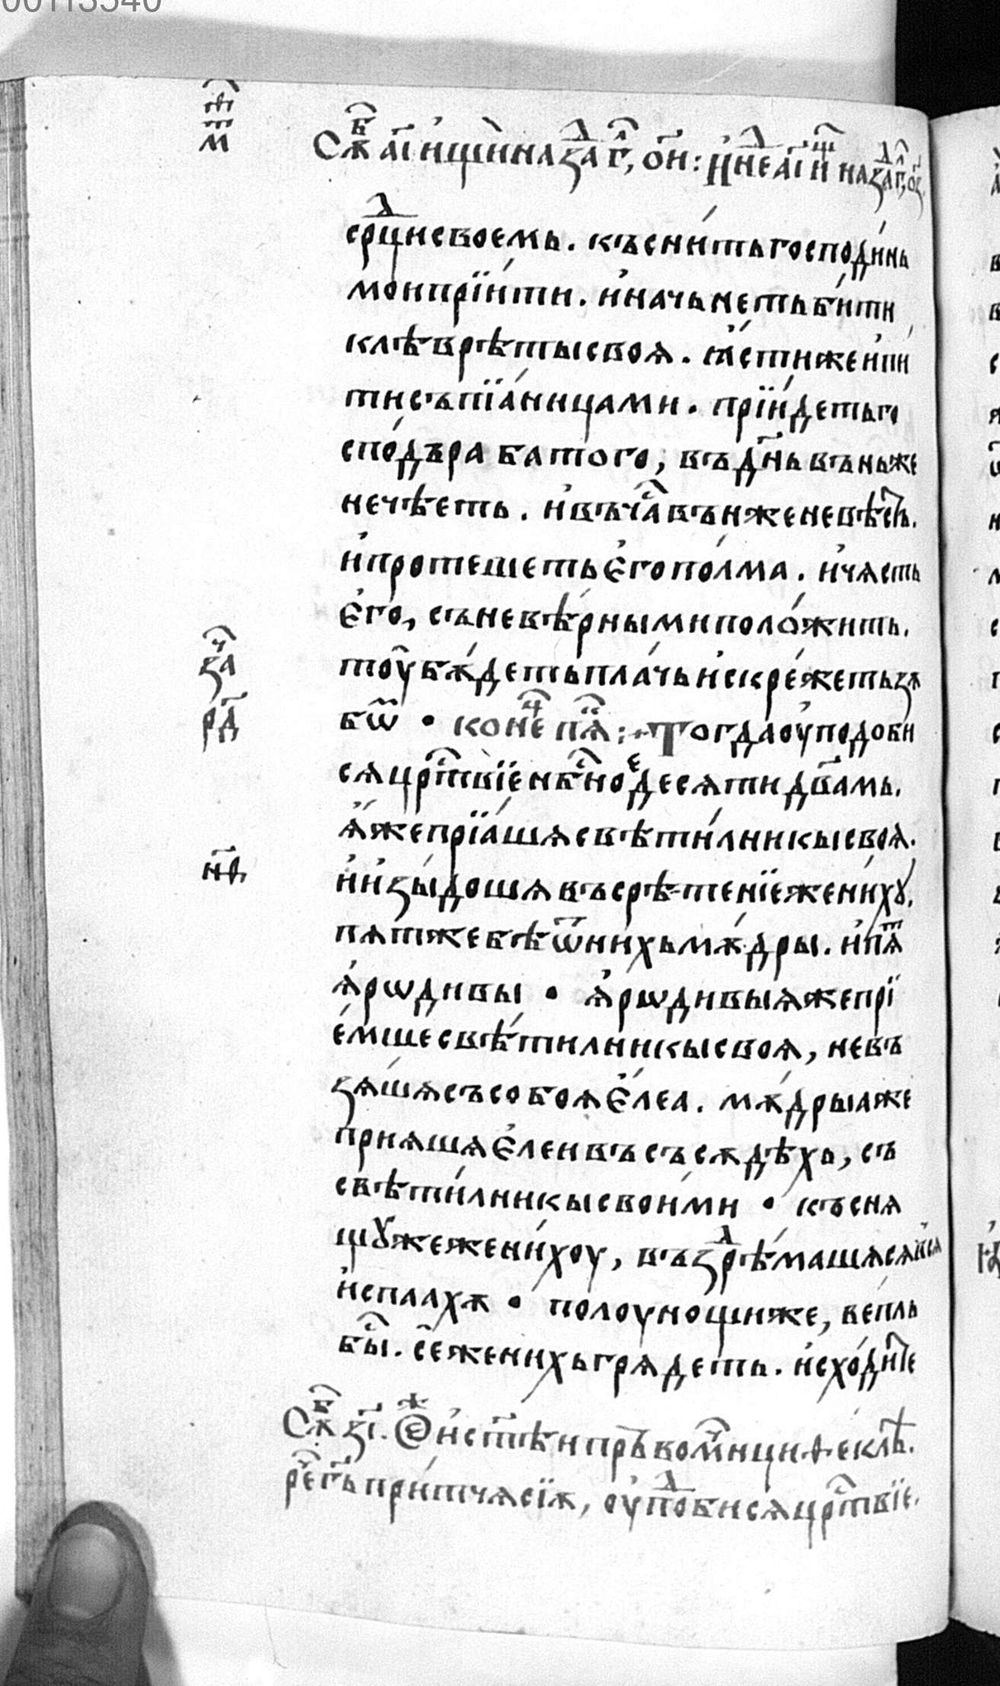 00113540
Сѫ҃ аі҃ ищи на за г҃, он҃: н҃не аі҃ и на за г҃,
ср҃ци своемь. къснить господинь
мои прїити. и начьнеть бити
клѣврѣты своѧ. ꙗсти же и пи
ти съ пїаницами. прїидеть го
сподъ раба того, въ дн҃ь въ ньже
не чѣеть. и въ ча҃ въ нже не вѣсть.
и протешеть єго полма. и чѧсть
єго, съ невѣрными положить.
тоу бѫдеть плачь и скрежеть зѫ
бѡ҃ • коне пѧ҃ :~ Тогда оуподоби
сѧ цр҃твїе нб҃ное десѧти дв҃амь.
ѫже прїашѧ свѣтилникы своѧ.
и изыдошѧ въ срѣтенїе женихꙋ,
пѧт же бѣ ѿ нихь мѫдры. и пѧт
ѫрѡдивы • ѫрѡдивыѧ же прї
емше свѣтилникы своѧ, не въ
зѧшѧ съ собоѧ єлеа. мѫдрыа же
приѧшѧ єлеи въ съсѫдѣхь, съ
свѣтилникы своими • къснѧ
щꙋ же женихоу, въздрѣмашѧ сѧ всѧ
и спаахѫ • полоунощи же, вепль
бы҃. се женихь грѧдеть. исходите
Сѫ҃ зі҃. и ст҃ѣи пръвомч҃ици феклѣ.
рече г҃ь притчѧ сїѫ, оуподобисѧ цр҃твїе.
м
за҃
рд҃